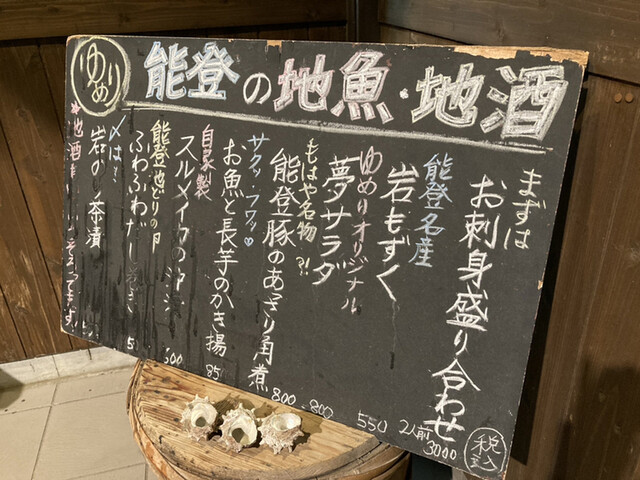 ゆめり
能登の地魚・地酒
まずは
お刺身盛り合わせ
2人前
3000
税込
能登名産
岩もずく
550
ゆめりオリジナル
夢サラダ
800
もはや名物?!
能登豚のあっさり角煮
800
サクッ・フワッ♡
お魚と長芋のかき揚
85
自家製
スルメイカの沖漬
500
能登地どりの卵
ふわふわだし巻き
5
〆は!
岩のり茶漬
*地酒
そろってます